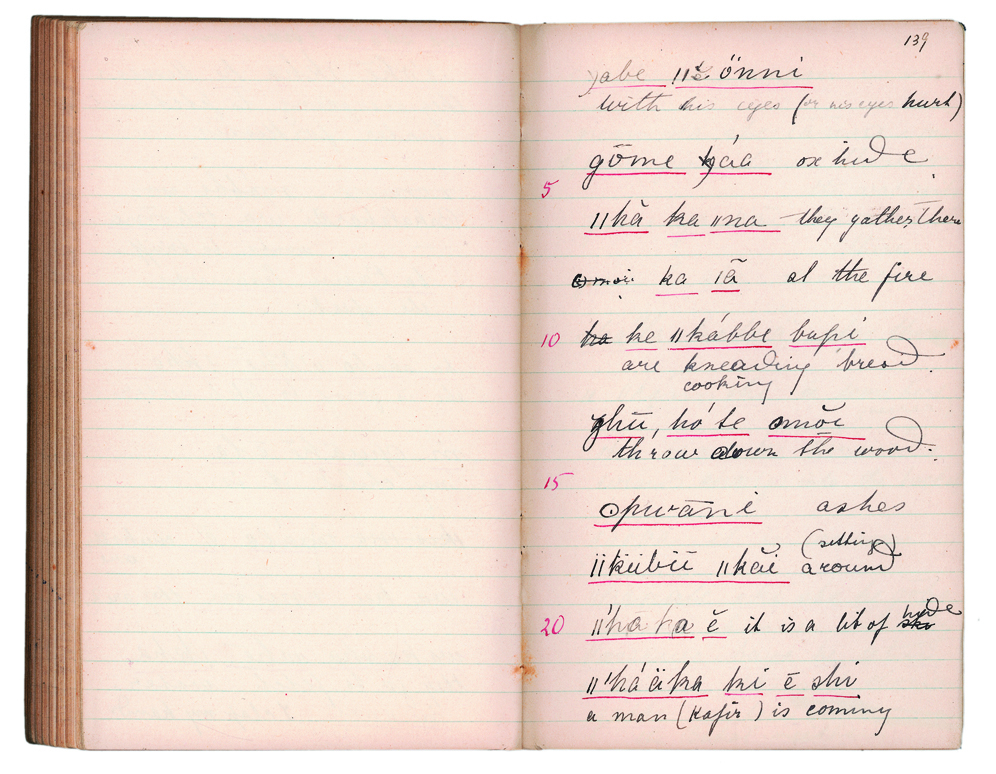 139
yabe ǁǯ önni
with his eyes (or his eyes hurt)
gōme káa ox hide
5
ǁkă ka ǁna they gather there
ka ǀā at the fire
10 ka ke ǁkábbe bupi
are kneading bread.
cooking
ghū, hó te omŏi
throw down the wood.
15
opwāni ashes
(setting)
ǁkübīī ǁkăi around
hide
20 ǁ'ha ka ĕ it is a bit of skin
ǁ'háäka ki ē shi
a man (Kafir) is coming